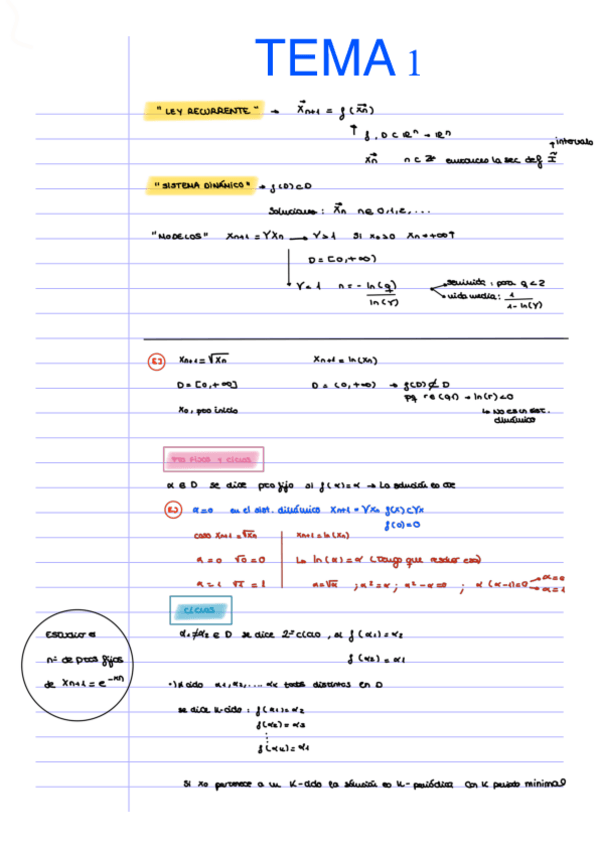 TEMA 1
"LEY RECURRENTE" → x⃗n+1 = f(x⃗n)
↑ f, D ⊂ ℝⁿ → ℝⁿ
x⃗n n ∈ ℤ⁺ entonces la sec def Ĩ → intervalo
"SISTEMA DINÁMICO" → f(D)⊂D
Soluciones: x⃗n n=0,1,2,...
"MODELOS" xn+1 = γxn → γ>1 Si x0>0 xn→+∞↑
D = [0,+∞)
γ<1 n = - ln(q) / ln(γ)
semivida: para q<2
vida media: 1 / 1-ln(γ)
EJ xn+1 = √xn xn+1 = ln(xn)
D = [0,+∞] D = (0,+∞) → f(D)⊄D
pq r∈(0,1) → ln(r)<0
x0, pto inicio ↳ No es un sist. dinámico
PTOS FIJOS Y CICLOS
α∈D se dice pto fijo si f(α)=α → La solución es cte
EJ α=0 en el sist. dinámico xn+1 = γxn f(x)=γx
f(0)=0
caso xn+1=√xn xn+1=ln(xn)
α=0 √0=0 ↳ ln(α)=α (Tengo que resolver eso)
α=1 √1=1 α=√α ; α²=α ; α²-α=0 ; α(α-1)=0 α=0 α=1
CICLOS
ESTUDIO el
nº de ptos fijos
de xn+1=e^-xn
α1≠α2∈D se dice 2-ciclo, si f(α1)=α2
f(α2)=α1
·) K ciclo α1,α2,... αk todos distintos en D
se dice K-ciclo: f(α1)=α2
f(α2)=α3
⋮
f(αk)=α1
Si x0 pertenece a un K-ciclo la solución es K-periódica con K periodo minimal